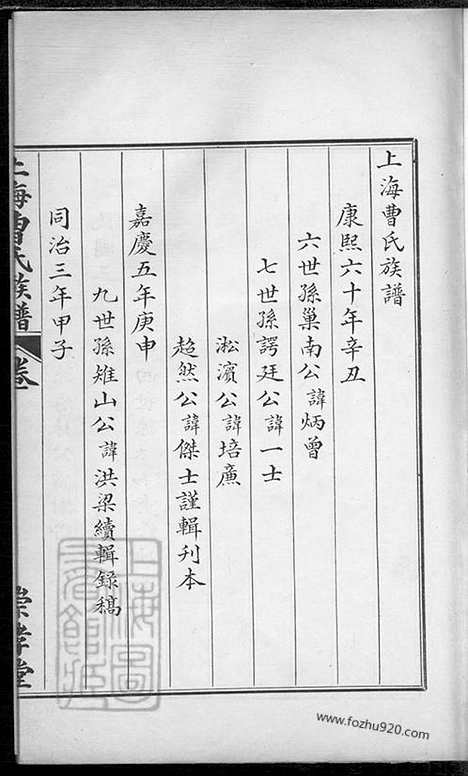 上海曹氏族譜
康熙六十年辛丑
六世孫巢南公諱炳曾
七世孫諤廷公諱一士
淞濱公諱培廉
超然公諱傑士謹輯刊本
嘉慶五年庚申
九世孫雉山公諱洪梁續輯錄稿
同治三年甲子
上海曹氏族譜
卷一
崇孝堂
www.fozhu920.com